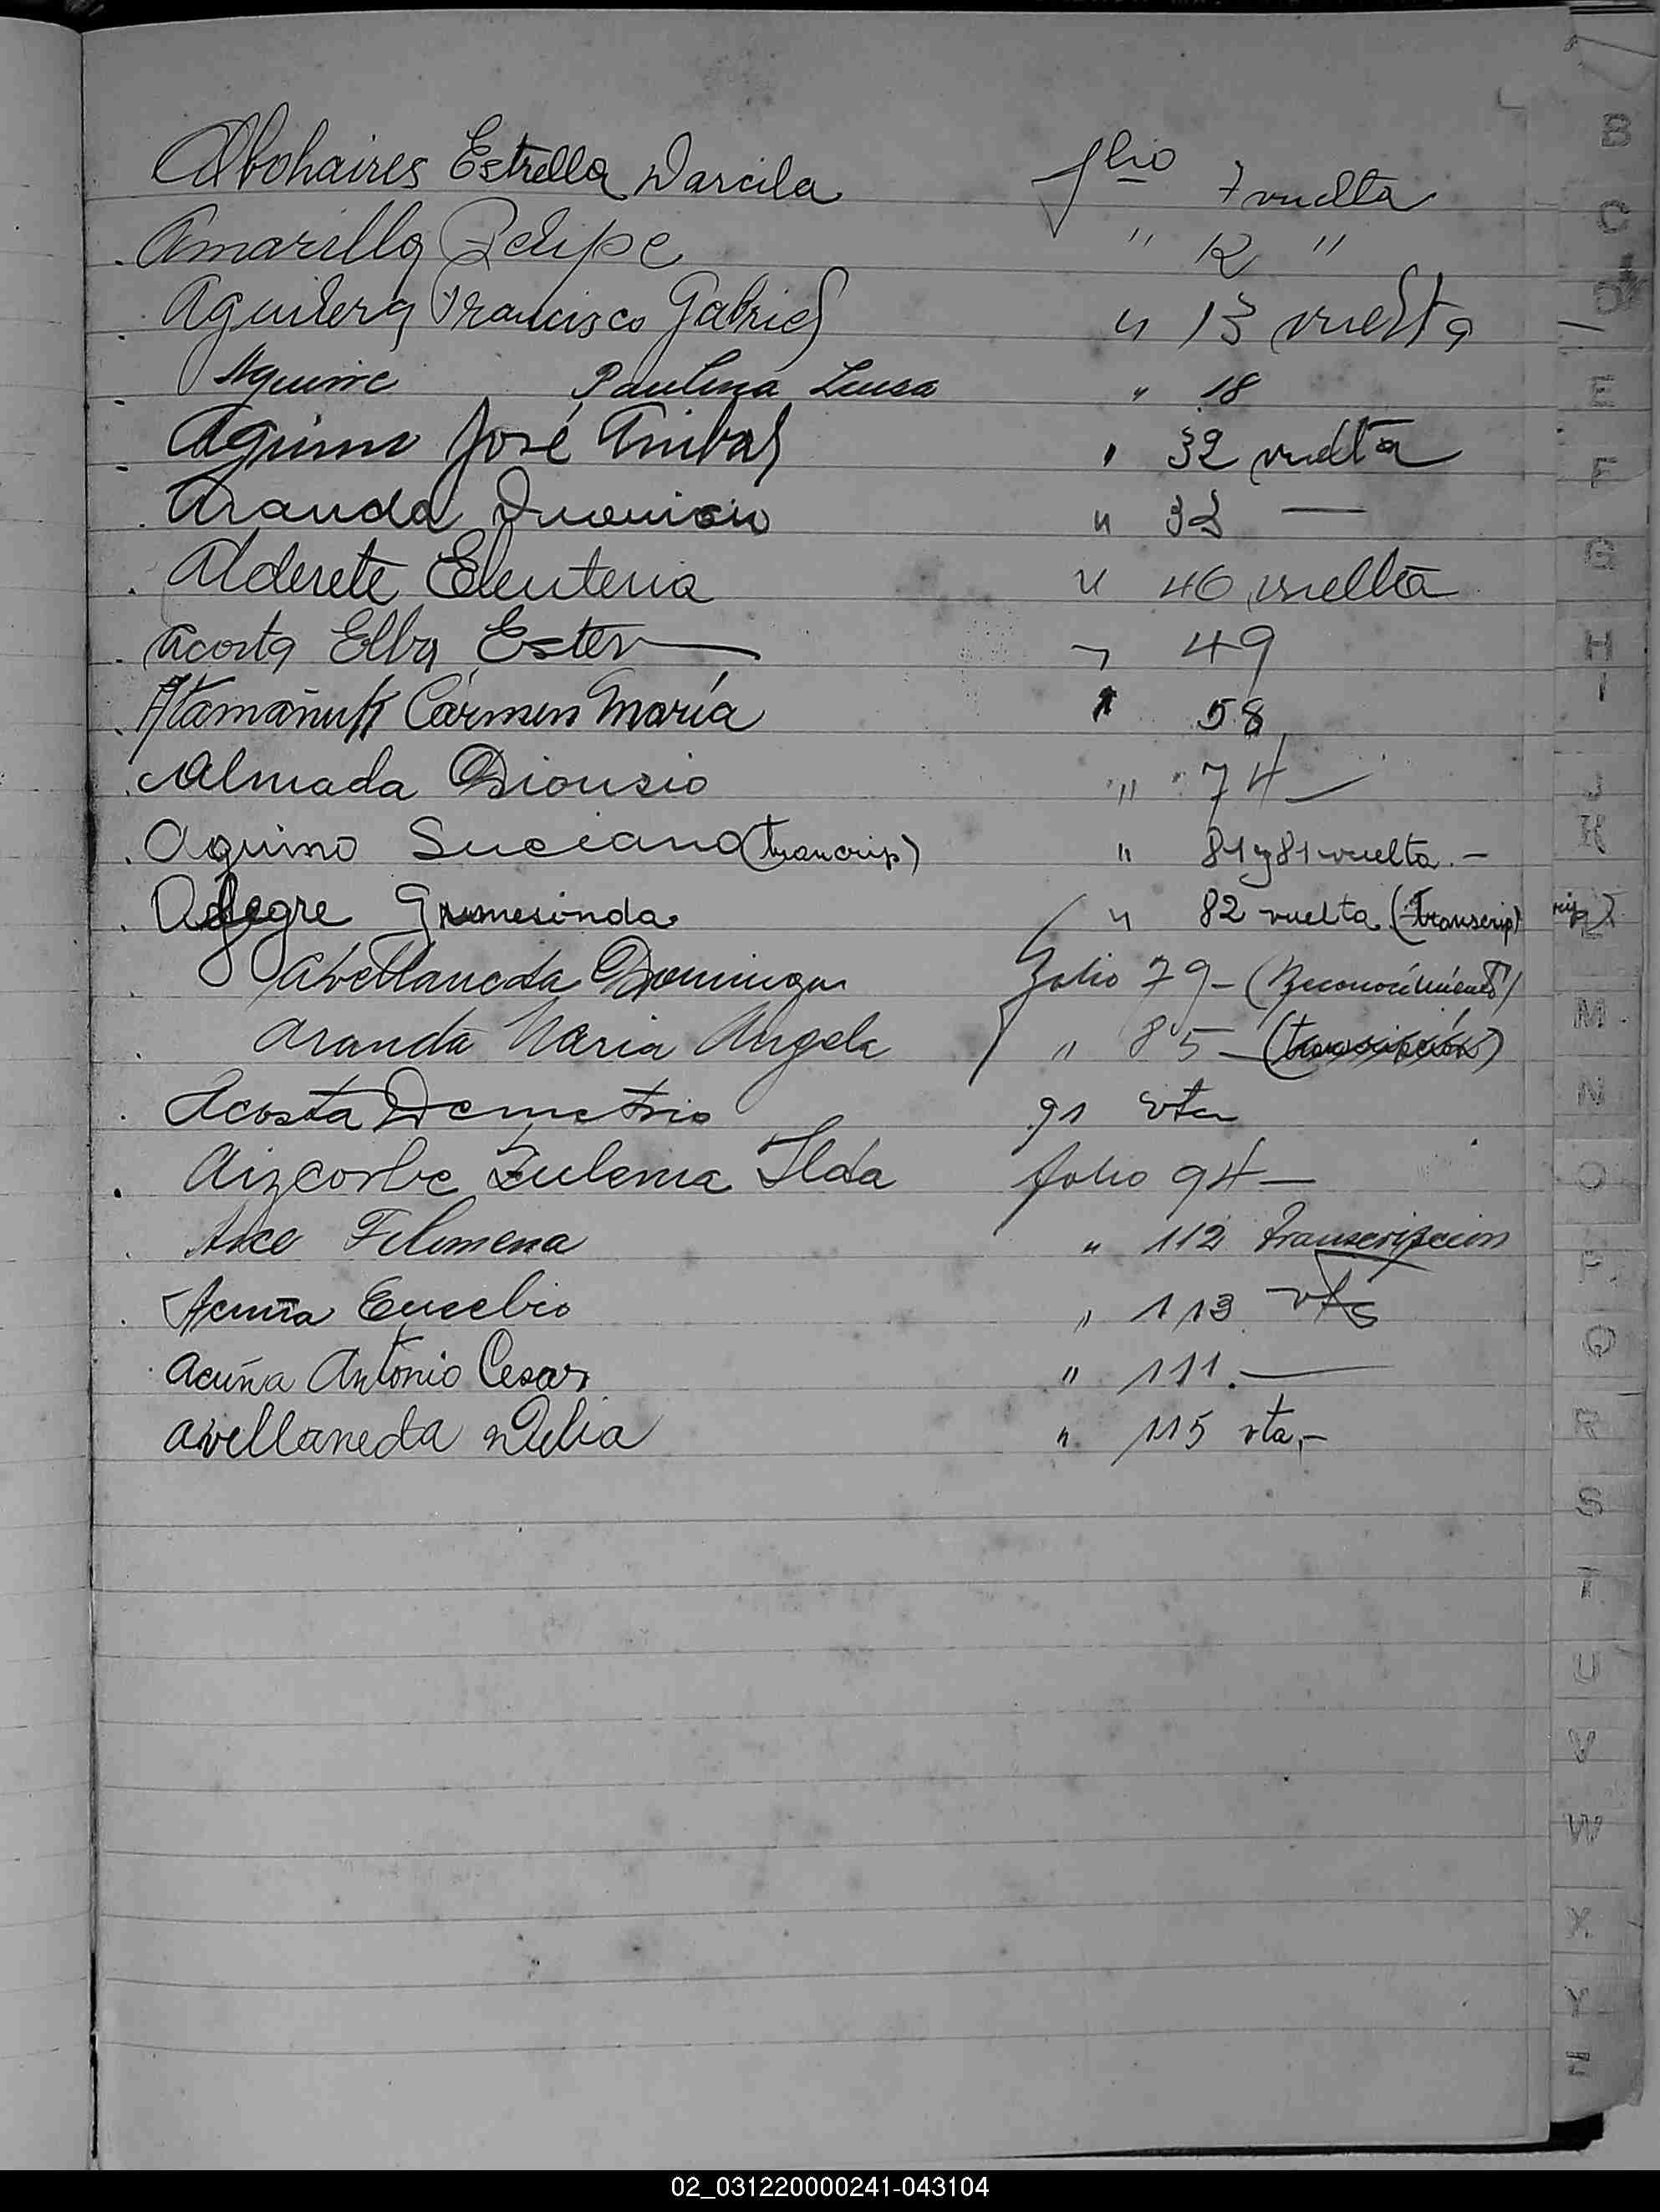 Abohaires Estrella Darcila folio 7 vuelta
Amarilla Felipe " 12 "
Aguilera Francisco Gabriel " 13 vuelta
Aguirre Paulina Luisa " 18
Aquino José Anibal " 32 vuelta
Aranda " 38 —
Alderete Eleuteria " 40 vuelta
Acosta Elba Ester " 49
Atamañuk Cármen María " 58
Almada Dionisio " 74 —
Aquino Luciano (trancrip) " 81 y 81 vuelta. —
Alegre Grumesinda " 82 vuelta (transcrip)
Avellaneda Dominga Folio 79 - (Reconocimiento)
Aranda Maria Angela " 85 - (transcripción)
Acosta Demetrio 91 vta
Aizcorbe Zulema Ilda folio 94 —
Arce Filomena " 112 transcripcion
Acuña Eusebio " 113 vta
Acuña Antonio Cesar " 111. —
Avellaneda Delia " 115 vta, -
B
C
D
E
F
G
H
I
J
K
L
M
N
O
P
Q
R
S
T
U
V
W
X
Y
Z
02_031220000241-043104